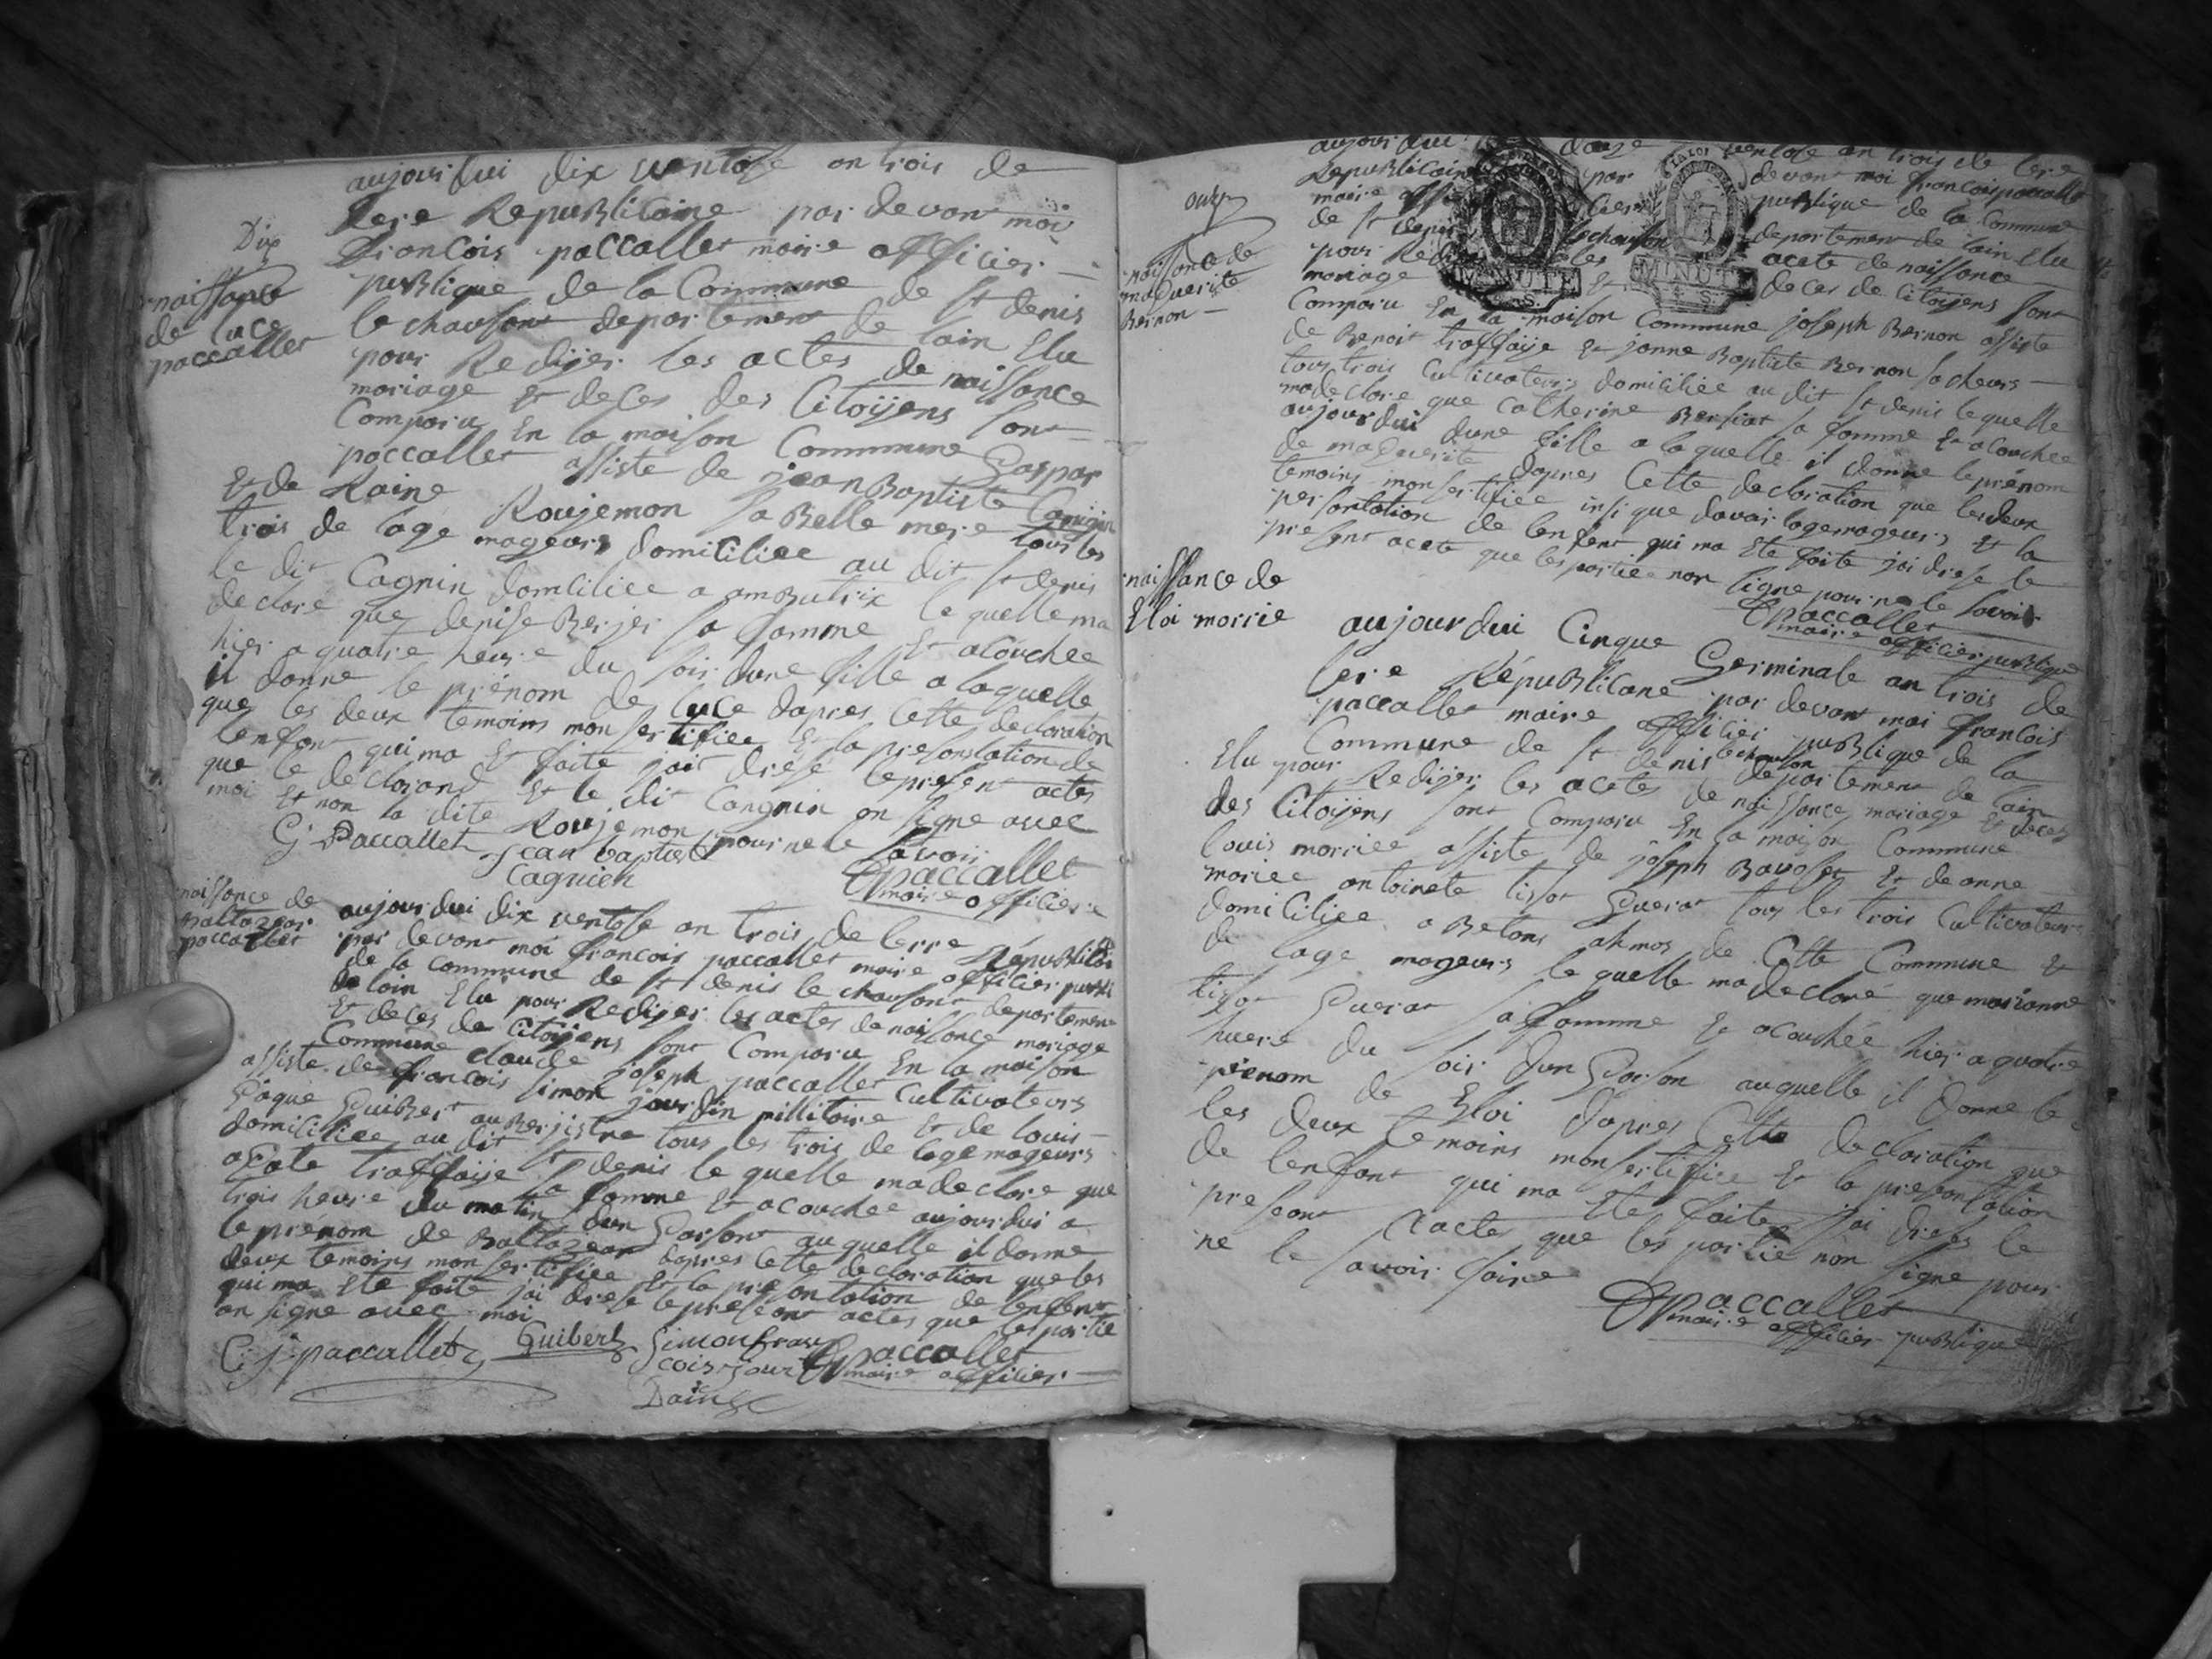 Dix
naissance
de luce
paccallet
aujourdui dix ventose an trois de
lere Republicaine par devant moi
francois paccallet maire officier
publique de la Commune de st denis
le chausont departement de lain Elu
pour Redijer les actes de naissance
mariage et deces des Citoÿens sont
Comparu En la maison Commune Gaspar
paccallet assiste de jean Baptiste Cangnin
Et de Raine Roujemon sa Belle mere tous les
trois de lage mageurs domiciliee au dit st denis
le dit Cagnin domiliee a ambutrix le quelle ma
declare que denise Berjer sa famme Et acouchee
hier a quatre heure du soir dune fille a laquelle
il donne le prénom de luce dapres Cette declaration
que les deux temoins mon sertifiee Et la presontation de
lenfant qui ma Et faite jait dresé le present actes
que le declarand Et le dit Cangnin on signe avec
moi Et non la dite Roujemon pour ne le savoir
G. Paccallet jean baptiste
Cagnien
paccallet
maire officier
naissance de
Baltazar
paccallet
aujourdui dix ventose an trois de lerre Républicai
par devant moi francois paccallet maire officier publi
de la commune de st denis le chausont departement
de lain Elu pour Redijer les actes de naissance mariage
Et deces de Citoÿens sont Comparu En la maison
Commune claude joseph paccallet Cultivateurs
assiste de francois simon jourdin millitaire Et de louis
jaque Guibert auberjistre tous les trois de lage mageurs
domiciliee au dit st denis le quelle ma declare que
agate traffaije sa famme Et acouchee aujourdui a
trois heure du matin dun Garsont auquelle il donne
le prénom de Baltazear dapres Cette declaration que les
deux temoins mon sertifiee Et la presontation de lenfent
qui ma Ete faite jai drese le preseant actes que les partie
on signe avec moi
C. j. paccallet Guibert Simon fran
cois jour
Dain
paccallet
maire officier
onze
naissance de
maguerite
Bernon
aujourdui douze ventose an trois de lere
Republicaine par devant moi francois paccallet
maire officier publique de la Commune
de st denis le chauson departement de lain Elu
pour Redijer les acete de naissance
mariage Et deces de Citoÿens sont
Comparu En la maison Commune joseph Bernon assiste
de Benoit traffaije Et janne Baptiste Bernon sa cheurs
tous trois Cultivateurs domiciliée au dit st denis le quelle
ma declare que Catherine Bersiat sa famme Et acouchee
aujourdui dune fille a la quelle il donne le prénom
de maguerite dapres Cette declaration que les deux
temoins mon sertifiée insi que davair lage mageurs Et la
persontation de lenfent qui ma Ete faite jai drese le
present acete que les partiee non signe pour ne le savoir
paccallet
maire officier publique
naissance de
Eloi morrie
aujourdui Cinque Germinale an trois de
lere Républicane par devant moi francois
paccallet maire officier publique de la
Commune de st denis le chauson departement de lain
Elu pour Redijer les acetes de naissance mariage Et deces
des Citoÿens sont Comparu En la maison Commune
louis morriee assiste de joseph Bavoset Et de anne
mariee antoinete tissot Guerat tous les trois Cultivateurs
domiciliee a Betons ahmos de Cette Commune Et
de lage mageurs le quelle ma declaré que marianne
tisot Guerat sa famme Et acouchée hier a quatre
huere du soir dun Garson auquelle il donne le
prénom de Eloi dapres Cette declaration que
les deux temoins mon sertifiee Et la presontation
de lenfant qui ma Ete faite jai dreses le
preseant actes que les partie non signe pour
ne le savoir faire
paccallet
maire officier publique